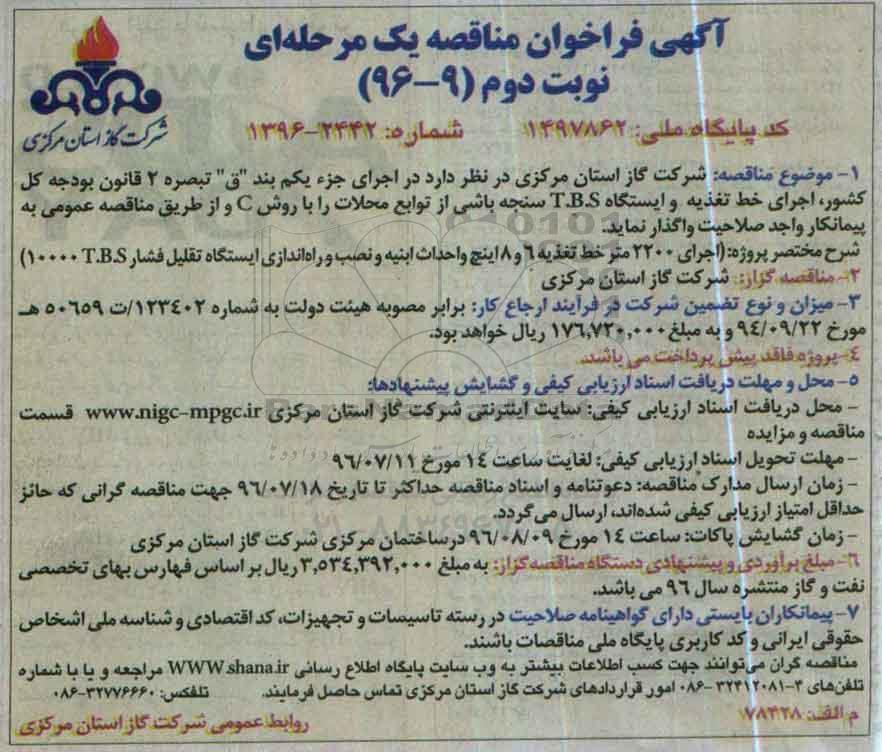 آگهی فراخوان مناقصه یک مرحله‌ای
نوبت دوم (۹-۹۶)
شرکت گاز استان مرکزی
کد پایگاه ملی: ۱۴۹۷۸۶۲ شماره: ۲۴۴۲-۱۳۹۶
۱- موضوع مناقصه: شرکت گاز استان مرکزی در نظر دارد در اجرای جزء یکم بند "ق" تبصره ۲ قانون بودجه کل
کشور، اجرای خط تغذیه و ایستگاه T.B.S سنجه باشی از توابع محلات را با روش C و از طریق مناقصه عمومی به
پیمانکار واجد صلاحیت واگذار نماید.
شرح مختصر پروژه: (اجرای ۲۲۰۰ متر خط تغذیه ۶ و ۸ اینچ و احداث ابنیه و نصب و راه‌اندازی ایستگاه تقلیل فشار T.B.S ۱۰۰۰۰)
۲- مناقصه گزار: شرکت گاز استان مرکزی
۳- میزان و نوع تضمین شرکت در فرآیند ارجاع کار: برابر مصوبه هیئت دولت به شماره ۱۲۳۴۰۲/ت ۵۰۶۵۹ هـ
مورخ ۹۴/۰۹/۲۲ و به مبلغ ۱۷۶,۷۲۰,۰۰۰ ریال خواهد بود.
۴- پروژه فاقد پیش پرداخت می باشد.
۵- محل و مهلت دریافت اسناد ارزیابی کیفی و گشایش پیشنهادها:
- محل دریافت اسناد ارزیابی کیفی: سایت اینترنتی شرکت گاز استان مرکزی www.nigc-mpgc.ir قسمت
مناقصه و مزایده
- مهلت تحویل اسناد ارزیابی کیفی: لغایت ساعت ۱۴ مورخ ۹۶/۰۷/۱۱
- زمان ارسال مدارک مناقصه: دعوتنامه و اسناد مناقصه حداکثر تا تاریخ ۹۶/۰۷/۱۸ جهت مناقصه گرانی که حائز
حداقل امتیاز ارزیابی کیفی شده‌اند، ارسال می‌گردد.
- زمان گشایش پاکات: ساعت ۱۴ مورخ ۹۶/۰۸/۰۹ درساختمان مرکزی شرکت گاز استان مرکزی
۶- مبلغ برآوردی و پیشنهادی دستگاه مناقصه گزار: به مبلغ ۳,۵۳۴,۳۹۲,۰۰۰ ریال بر اساس فهارس بهای تخصصی
نفت و گاز منتشره سال ۹۶ می باشد.
۷- پیمانکاران بایستی دارای گواهینامه صلاحیت در رسته تاسیسات و تجهیزات، کد اقتصادی و شناسه ملی اشخاص
حقوقی ایرانی و کد کاربری پایگاه ملی مناقصات باشند.
مناقصه گران می‌توانند جهت کسب اطلاعات بیشتر به وب سایت پایگاه اطلاع رسانی WWW.shana.ir مراجعه و یا با شماره
تلفن‌های ۴-۳۲۴۱۲۰۸۱-۰۸۶ امور قراردادهای شرکت گاز استان مرکزی تماس حاصل فرمایند. تلفکس: ۳۲۷۷۶۶۶۰-۰۸۶
م الف: ۷۸۴۲۸ روابط عمومی شرکت گاز استان مرکزی